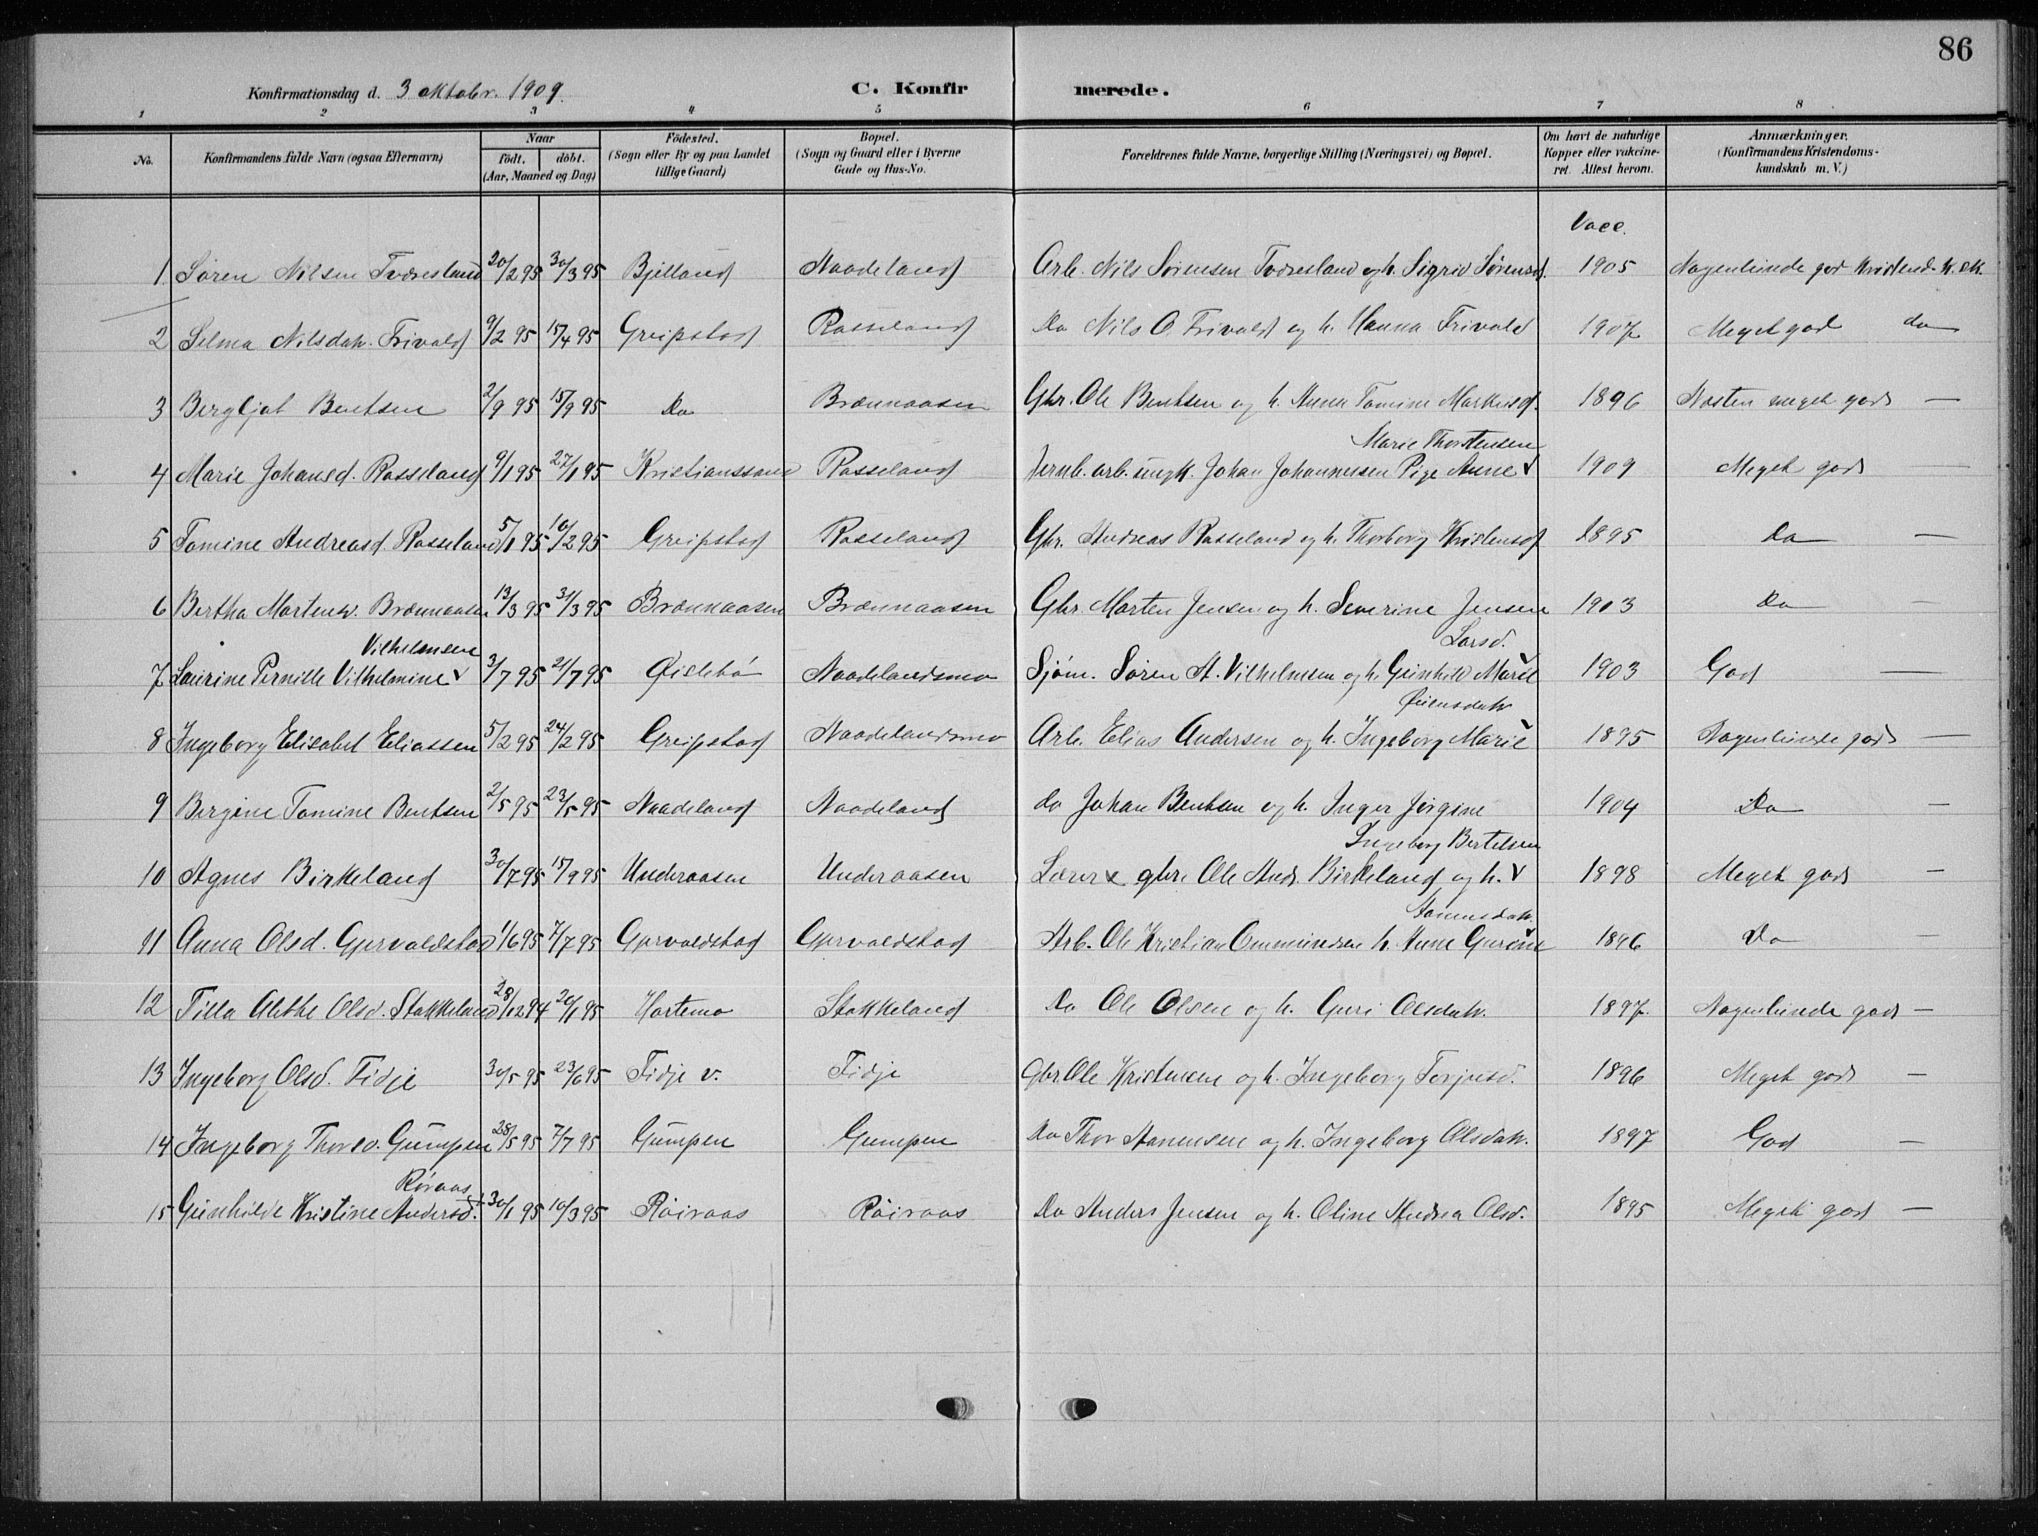 86
Konfirmationsdag d. 3 oktobr. 1909. C. Konfirmerede.
1 2 3 4 5 6 7 8
No. Konfirmandens fulde Navn (ogsaa Efternavn) Naar födt. döbt. (Aar, Maaned og Dag) Födested. (Sogn eller By og paa Landet tillige Gaard) Bopæl. (Sogn og Gaard eller i Byerne Gade og Hus-No. Forældrenes fulde Navne, borgerlige Stilling (Næringsvei) og Bopæl. Om havt de naturlige Kopper eller vakcineret. Attest herom. Anmærkninger. (Konfirmandens Kristendomskundskab m. V.)
Vacc.
1 Søren Nilsen Tveresland 20/2 95 30/3 95 Bjelland Naadeland Arb. Nils Sørensen Tveresland og h. Sigrid Sørensd. 1905 Nogenlunde god Kristend. k.sk.
2 Selma Nilsdatr. Frivold 9/2 95 15/4 95 Greipstad Rosseland Do Nils O. Frivold og h. Hanna Frivold 1907 Meget god do
3 Bergljot Bentsen 2/9 95 15/9 95 Do Brænnaasen Gbr. Ole Bentsen og h. Anna Tomine Markusd. 1896 Næsten meget god —
4 Marie Johansd. Rosseland 9/1 95 27/1 95 Kristianssand Rosseland Jernb. arb. ungk. Johan Johannessen Pige Anne √ Marie Thorstensen 1909 Meget god —
5 Tomine Andreasd. Rosseland 5/1 95 10/2 95 Greipstad Rosseland Gbr. Andreas Rosseland og h. Thorborg Kristensd. 1895 Do —
6 Bertha Martensd. Brænnaasen 13/3 95 31/3 95 Brænnaasen Brænnaasen Gbr. Morten Jensen og h. Severine Jensen 1903 Do —
7 Laurine Pernille Vilhelmine √ Vilhelmsen 3/7 95 21/7 95 Øislebø Naadelandsmo Sjøm. Søren A. Vilhelmsen og h. Gunhild Marie √ Larsd. 1903 God —
8 Ingeborg Elisabet Eliassen 5/2 95 24/2 95 Greipstad Naadelandsmo Arb. Elias Andersen og h. Ingeborg Marie √ Øiensdatr. 1895 Nogenlunde god —
9 Bergine Tomine Bentsen 2/5 95 23/5 95 Naadeland Naadeland do Johan Bentsen og h. Inger Jørgine 1904 Do —
10 Agnes Birkeland 30/7 95 15/9 95 Underaasen Underaasen Lærer & gbr. Ole Ands. Birkeland og h. √ Ingeborg Bertelsen 1898 Meget god —
11 Anna Olsd. Gjervoldstad 1/6 95 7/7 95 Gjervoldstad Gjervoldstad Arb. Ole Kristian Ommundsen h. Anne Gurine √ Aanensdatr. 1896 Do —
12 Tilla Alethe Olsd. Stokkeland 28/12 94 20/1 95 Hortemo Stokkeland Do Ole Olsen og h. Guri Olsdatr. 1897. Nogenlunde god —
13 Ingeborg Olsd. Fidje 30/5 95 23/6 95 Fidje v. Fidje Gbr. Ole Kristensen og h. Ingeborg Torjusd. 1896 Meget god —
14 Ingeborg Thorsd. Gumpen 28/5 95 7/7 95 Gumpen Gumpen Do Thor Aanensen og h. Ingeborg Olsdatr. 1897 God —
15 Gunhilde Kristine Andersd. + Røiraas 30/1 95 10/3 95 Røiraas Røiraas Do Anders Jensen og h. Oline Andrea Olsd. 1895 Meget god —